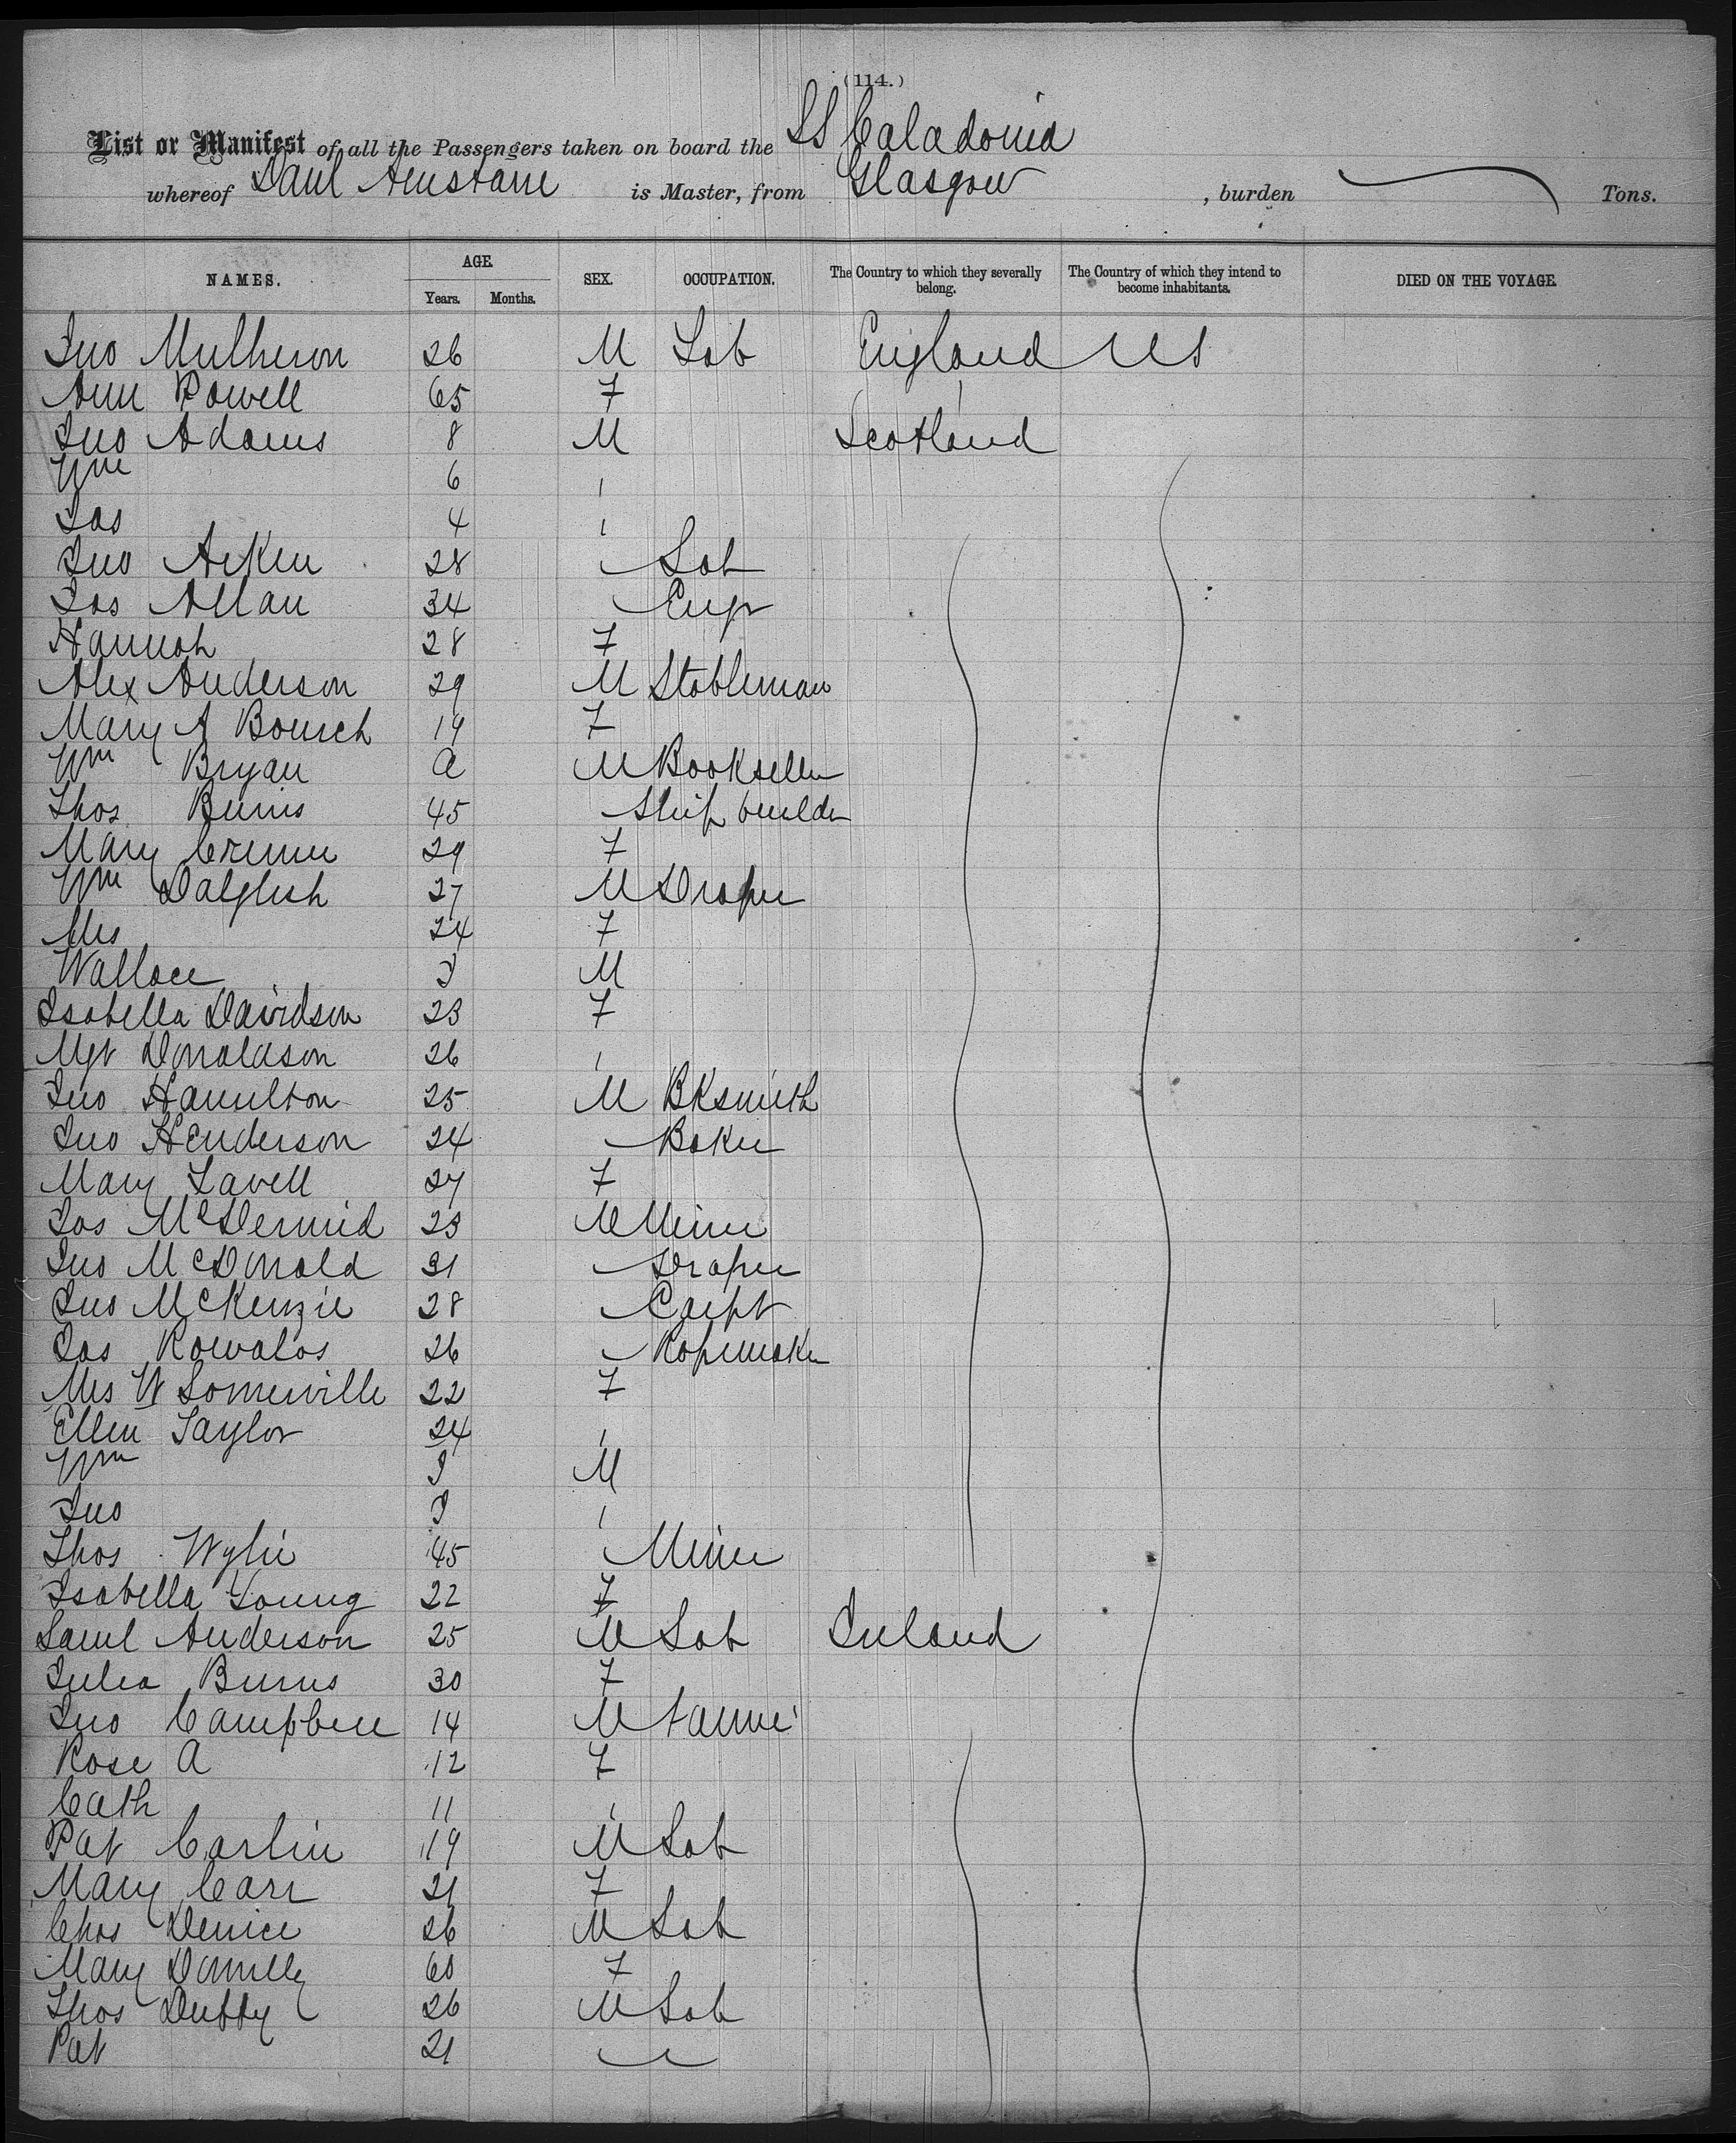 (114.)
List or Manifest of all the Passengers taken on board the SS Caladonia
whereof is Master, from Glasgow , burden Tons.
NAMES. AGE. Years. Months. SEX. OCCUPATION. The Country to which they severally belong. The Country of which they intend to become inhabitants. DIED ON THE VOYAGE.
Jno Mulheron 26 M Lab England US
Ann Powell 65 F
Jno Adams 8 M Scotland
Wm 6 "
Jas 4 "
Jno Aiken 28 Lab
Jas Allan 34 Engr
Hannah 28 F
Alex Anderson 29 M Stableman
Mary A 19 F
Wm Bryan a M Bookseller
Thos 45 Ship builder
Mary 29 F
Wm Dalglish 27 M Draper
Mrs 24 F
Wallace M
Isabella Davidson 23 F
Mgt Donaldson 26 "
Jno Hamilton 25 M Bksmith
Jno Henderson 24 Baker
Mary Lavell 27 F
Jas McDermid 23 M Miner
Jno McDonald 31 Draper
Jno McKenzie 28 Carpt
Jas 26 Ropemaker
Mrs W Somerville 22 F
Ellen Taylor 24 "
Wm M
Jno "
Thos Wylie 45 Miner
Isabella Young 22 F
Saml Anderson 25 M Lab Ireland
Julia Burns 30 F
Jno Campbell 14 M
Rose A 12 F
Cath 11 "
Pat Carlin 19 M Lab
Mary Carr 21 F
Chas 26 M Lab
Mary Donnelly 60 F
Thos Duffy 26 M Lab
Pat 21